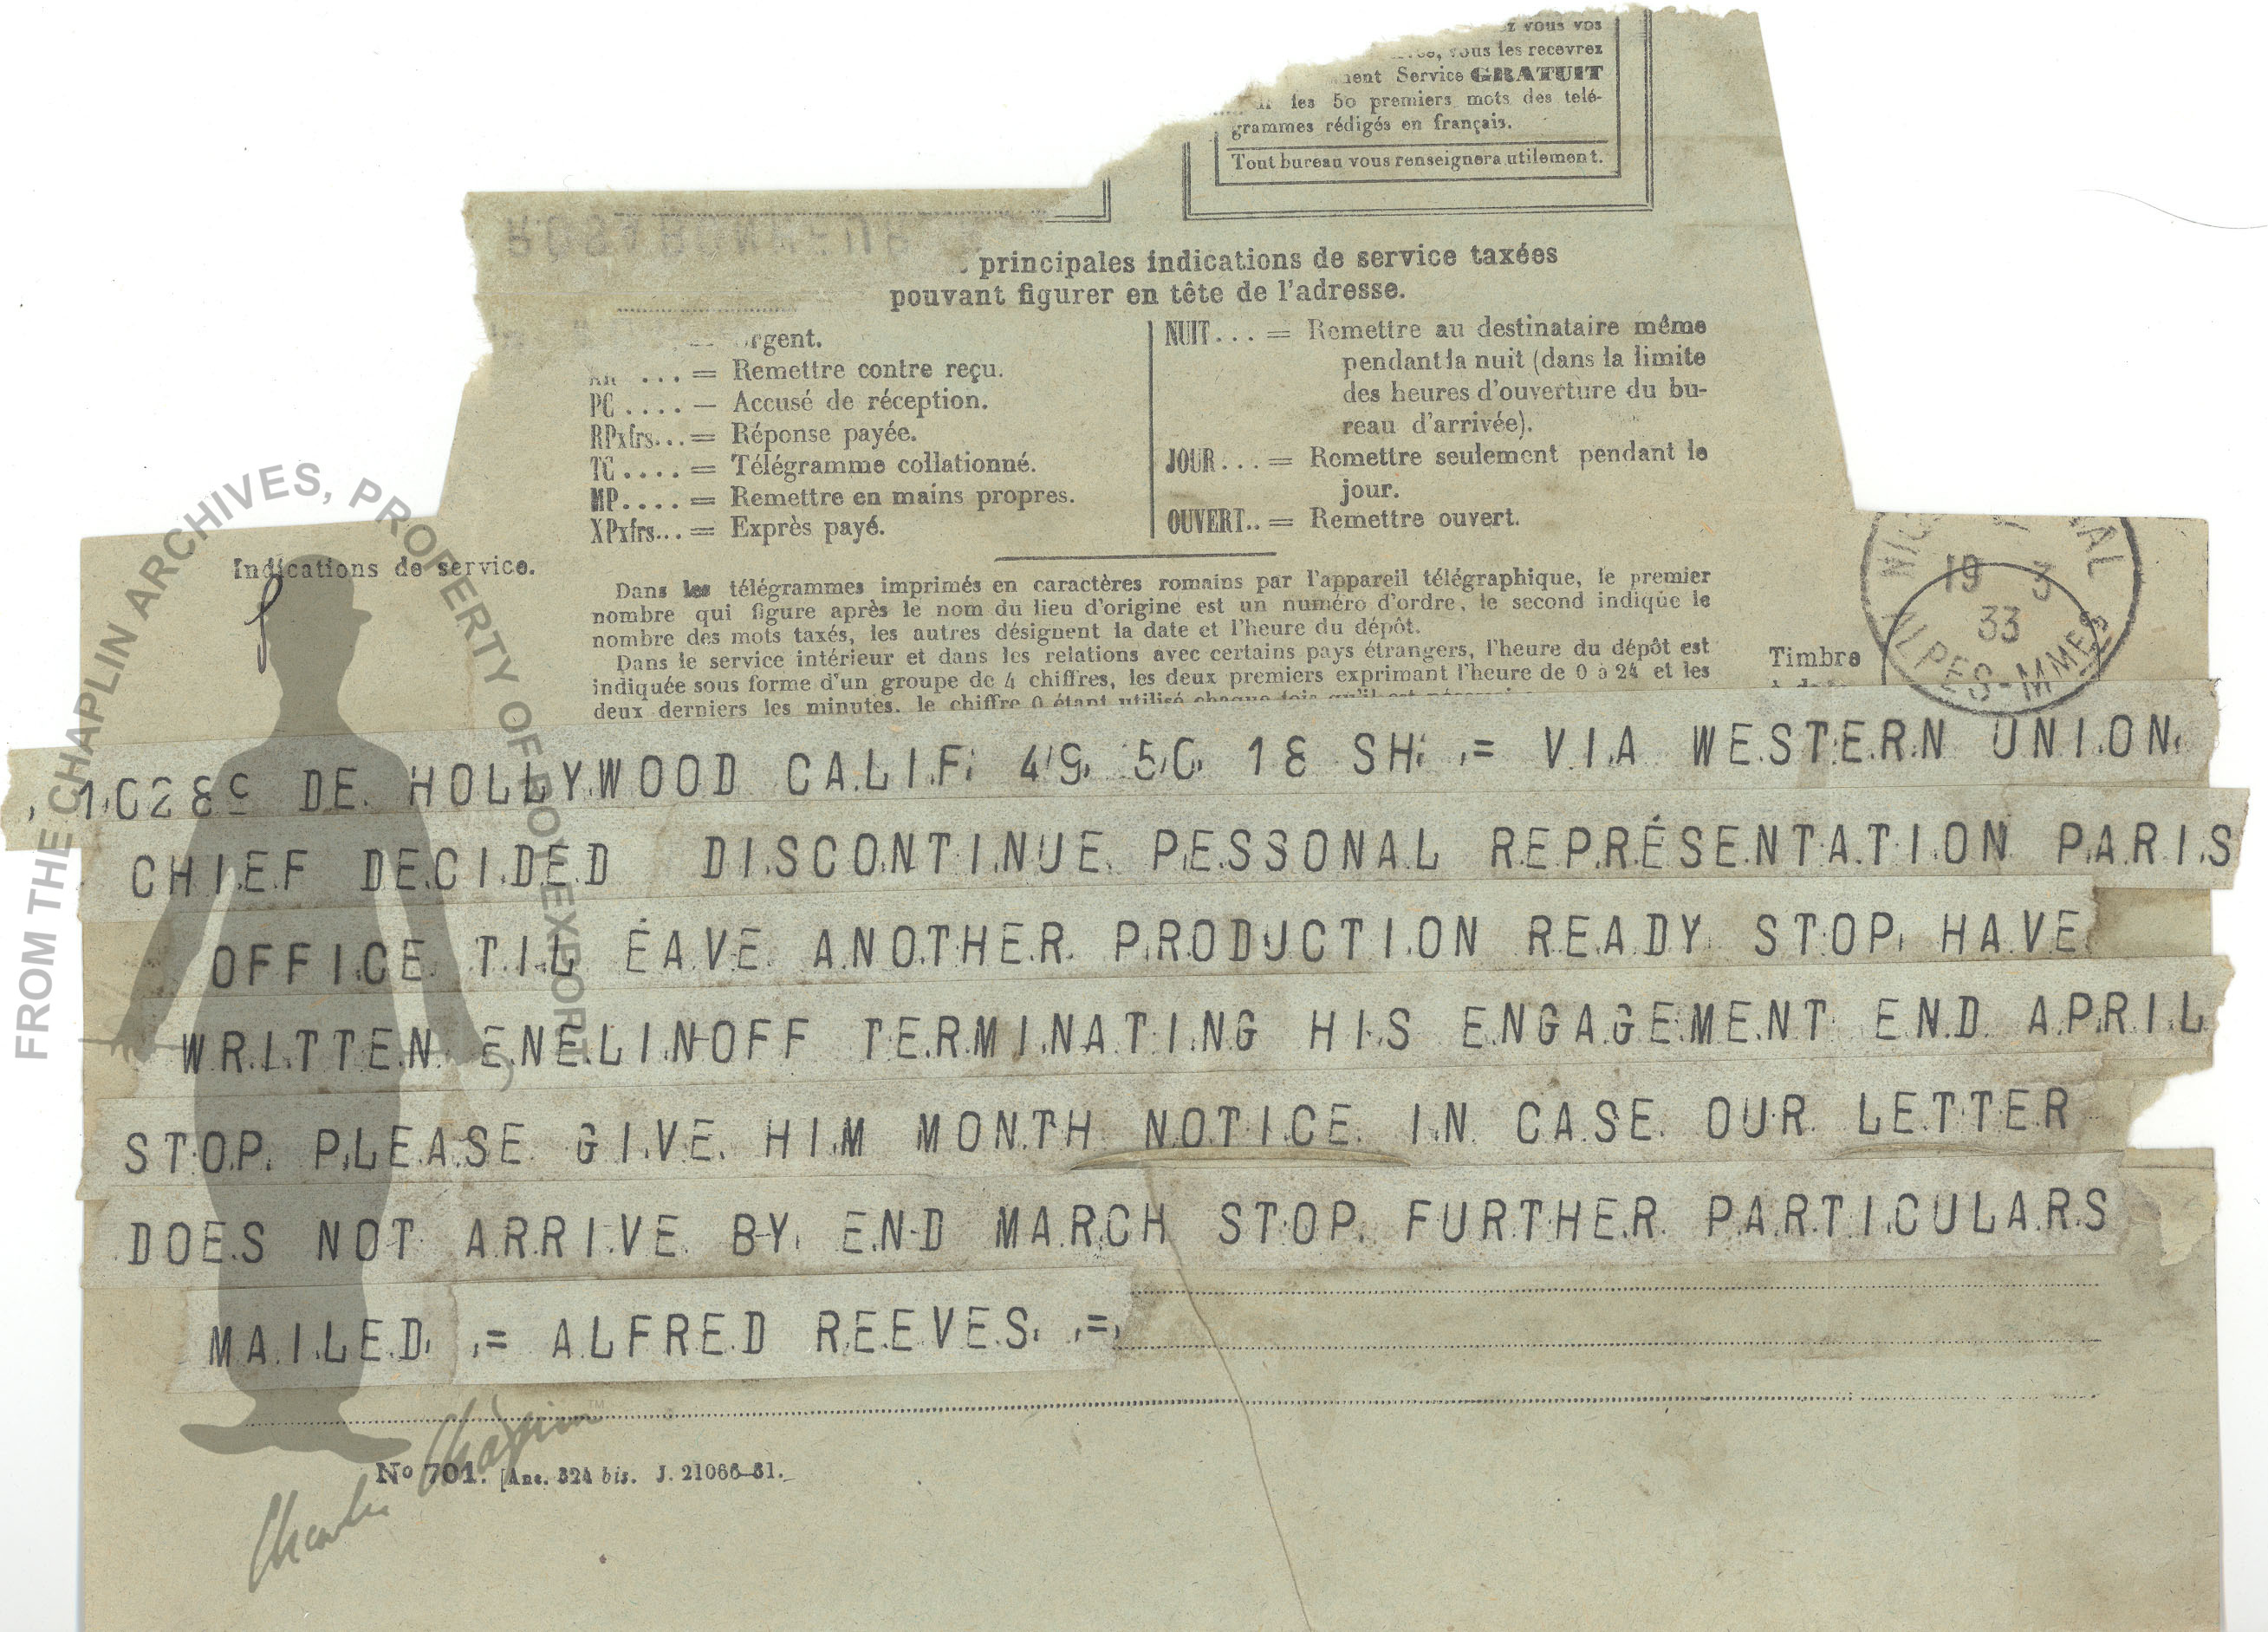 vous vos
vous les recevrez
Service GRATUIT
les 50 premiers mots des telé-
grammes rédigés en français.
Tout bureau vous renseignera utilement.
principales indications de service taxées
pouvant figurer en tête de l'adresse.
... = Remettre contre reçu.
PC .... — Accusé de réception.
RPxfrs... = Réponse payée.
TC .... = Télégramme collationné.
MP.... = Remettre en mains propres.
XPxfrs... = Exprès payé.
NUIT... = Remettre au destinataire même
pendant la nuit (dans la limite
des heures d'ouverture du bu-
reau d'arrivée).
JOUR... = Remettre seulement pendant le
jour.
OUVERT.. = Remettre ouvert.
Indications de service.
Dans les télégrammes imprimés en caractères romains par l'appareil télégraphique, le premier
nombre qui figure après le nom du lieu d'origine est un numéro d'ordre, le second indique le
nombre des mots taxés, les autres désignent la date et l'heure du dépôt.
Dans le service intérieur et dans les relations avec certains pays étrangers, l'heure du dépôt est
indiquée sous forme d'un groupe de 4 chiffres, les deux premiers exprimant l'heure de 0 à 24 et les
deux derniers les minutes, le chiffre 0 étant utilisé chaque fois qu'il est
Timbre
19 3
33
ALPES-MMES
DE HOLLYWOOD CALIF 49 50 18 SH = VIA WESTERN UNION
CHIEF DECIDED DISCONTINUE PESSONAL REPRÉSENTATION PARIS
OFFICE TIL EAVE ANOTHER PRODUCTION READY STOP HAVE
WRITTEN ENELINOFF TERMINATING HIS ENGAGEMENT END APRIL
STOP PLEASE GIVE HIM MONTH NOTICE IN CASE OUR LETTER
DOES NOT ARRIVE BY END MARCH STOP FURTHER PARTICULARS
MAILED = ALFRED REEVES =
No 701. [Anc. 324 bis. J. 21066-31.
FROM THE CHAPLIN ARCHIVES, PROPERTY OF ROY EXPORT
Charlie Chaplin TM